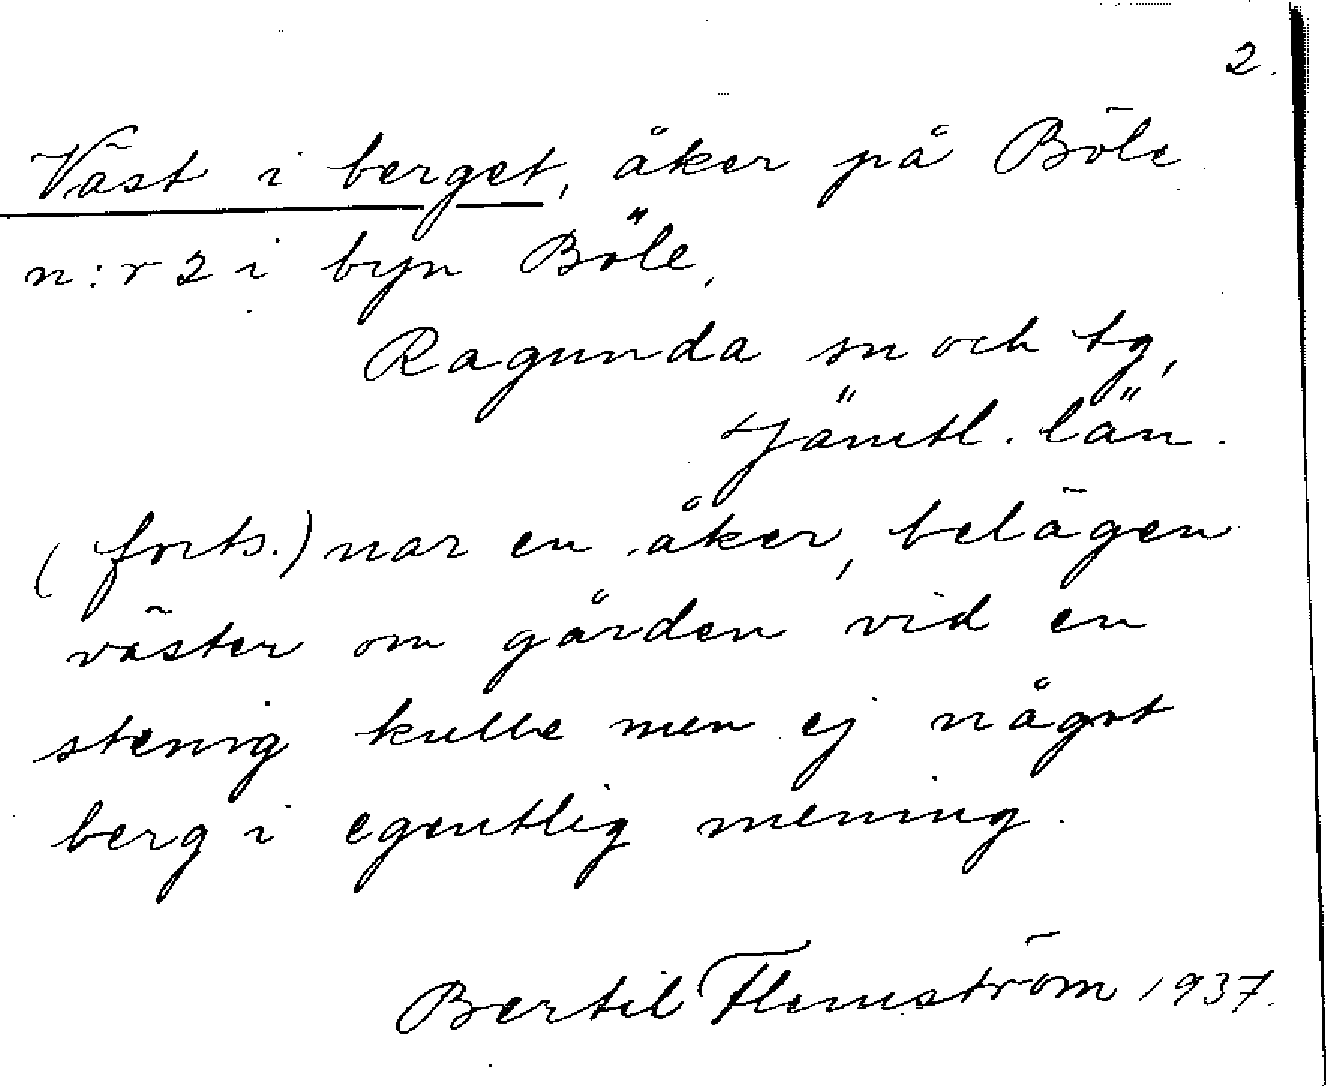 2.
Väst i berget, åker på Böle
n:r 2 i byn Böle,
Ragunda sn och tg,
Jämtl. län.
(forts.) nar en åker, belägen
väster om gården vid en
stenig kulle men ej något
berg i egentlig mening.
Bertil Flemström 1937.